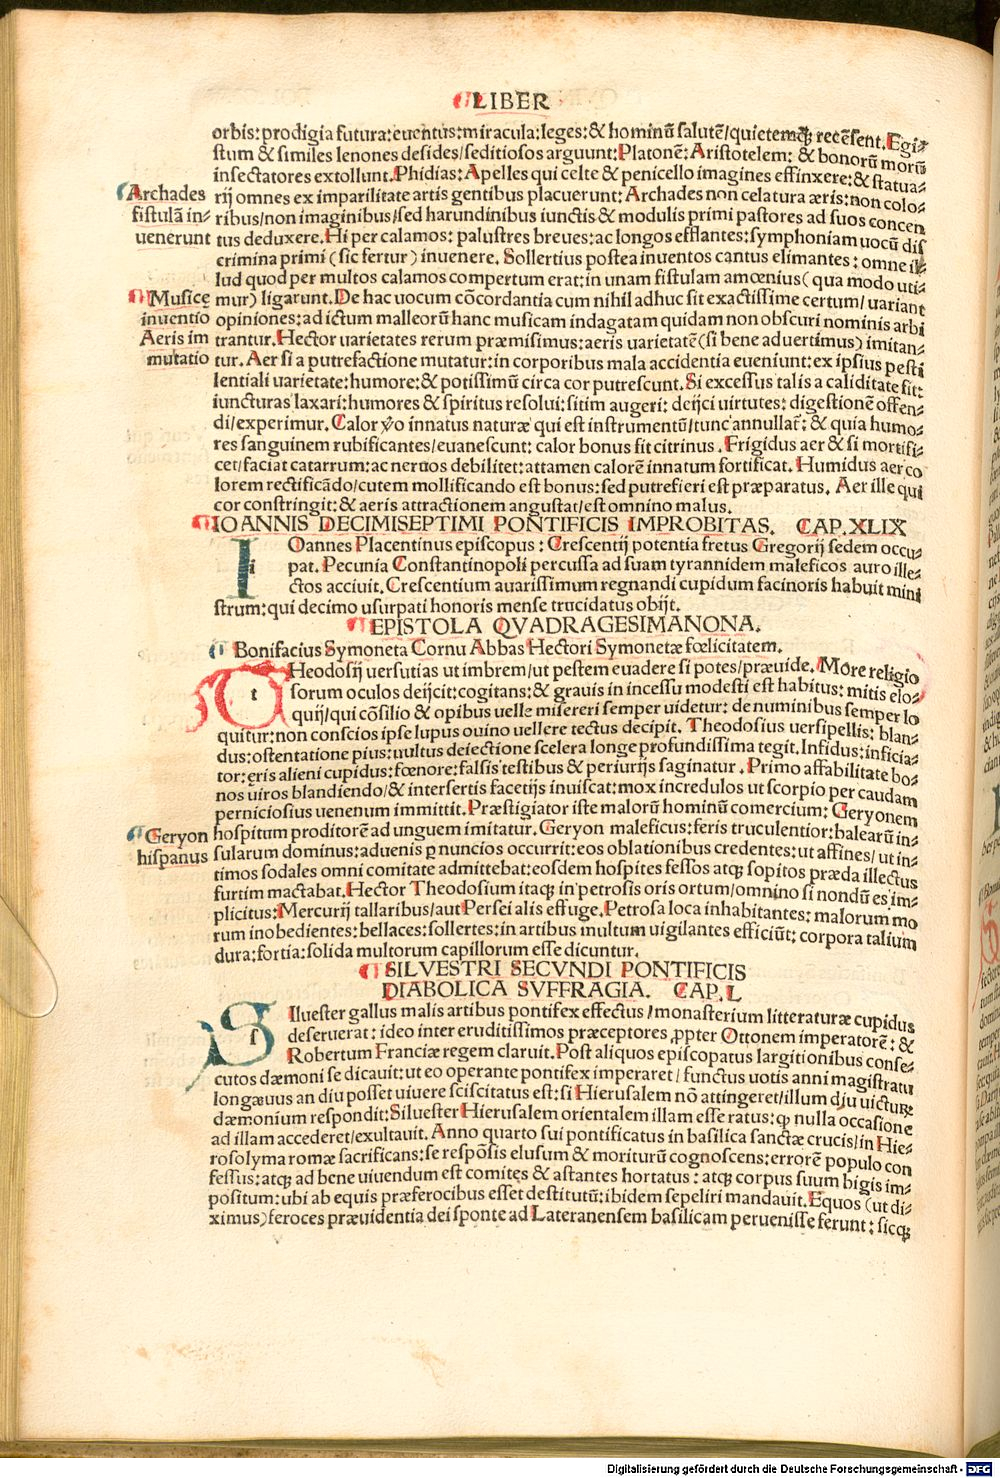 LIBER
orbis: prodigia futura: euentus: miracula: leges: & hominū salutē/quietemqȝ recēsent. Egi⸗
stum & similes lenones desides/seditiosos arguunt: Platonē: Aristotelem: & bonorū morū
insectatores extollunt. Phidias: Apelles qui celte & penicello imagines effinxere: & statua⸗
Archades
rij omnes ex imparilitate artis gentibus placuerunt: Archades non celatura æris: non colo⸗
fistulā in⸗
ribus/non imaginibus/sed harundinibus iunctis & modulis primi pastores ad suos concen
uenerunt
tus deduxere. Hi per calamos: palustres breues: ac longos efflantes: symphoniam uocū dis
crimina primi (sic fertur) inuenere. Sollertius postea inuentos cantus elimantes: omne il⸗
lud quod per multos calamos compertum erat: in unam fistulam amœnius (qua modo uti⸗
Musicę
mur) ligarunt. De hac uocum cōcordantia cum nihil adhuc sit exactissime certum/uariant
inuentio
opiniones: ad ictum malleorū hanc musicam indagatam quidam non obscuri nominis arbi
Aeris im
trantur. Hector uarietates rerum præmisimus: aeris uarietatē (si bene aduertimus) imitan⸗
mutatio
tur. Aer si a putrefactione mutatur: in corporibus mala accidentia eueniunt: ex ipsius pesti
lentiali uarietate: humore: & potissimū circa cor putrescunt. Si excessus talis a caliditate fit:
iuncturas laxari: humores & spiritus resolui: sitim augeri: deijci uirtutes: digestionē offen⸗
di/experimur. Calor ꝟo innatus naturæ qui est instrumentū/tunc annullat̄: & quia humo⸗
res sanguinem rubificantes/euanescunt: calor bonus fit citrinus. Frigidus aer & si mortifi⸗
cet/faciat catarrum: ac neruos debilitet: attamen calorē innatum fortificat. Humidus aer co
lorem rectificādo/cutem mollificando est bonus: sed putrefieri est præparatus. Aer ille qui
cor constringit: & aeris attractionem angustat/est omnino malus.
IOANNIS DECIMISEPTIMI PONTIFICIS IMPROBITAS. CAP. XLIX
I i Oannes Placentinus episcopus: Crescentij potentia fretus Gregorij sedem occu⸗
pat. Pecunia Constantinopoli percussa ad suam tyrannidem maleficos auro ille⸗
ctos acciuit. Crescentium auarissimum regnandi cupidum facinoris habuit mini
strum: qui decimo usurpati honoris mense trucidatus obijt.
EPISTOLA QVADRAGESIMANONA.
Bonifacius Symoneta Cornu Abbas Hectori Symonetæ fœlicitatem.
T t Heodosij uersutias ut imbrem/ut pestem euadere si potes/præuide. More religio
sorum oculos deijcit: cogitans: & grauis in incessu modesti est habitus: mitis elo⸗
quij/qui cōsilio & opibus uelle misereri semper uidetur: de numinibus semper lo
quitur: non conscios ipse lupus ouino uellere tectus decipit. Theodosius uersipellis: blan⸗
dus: ostentatione pius: uultus deiectione scelera longe profundissima tegit. Infidus: inficia⸗
tor: ęris alieni cupidus: fœnore: falsis testibus & periurijs saginatur. Primo affabilitate bo⸗
nos uiros blandiendo/& intersertis facetijs inuiscat: mox incredulos ut scorpio per caudam
perniciosius uenenum immittit. Præstigiator iste malorū hominū comercium: Geryonem
Geryon
hospitum proditorē ad unguem imitatur. Geryon maleficus: feris truculentior: balearū in⸗
hispanus
sularum dominus: aduenis ꝑ nuncios occurrit: eos oblationibus credentes: ut affines/ut in⸗
timos sodales omni comitate admittebat: eosdem hospites fessos atqȝ sopitos præda illectus
furtim mactabat. Hector Theodosium itaqȝ in petrosis oris ortum/omnino si nondū es im⸗
plicitus: Mercurij tallaribus/aut Persei alis effuge. Petrosa loca inhabitantes: malorum mo
rum inobedientes: bellaces: sollertes: in artibus multum uigilantes efficiūt: corpora talium
dura: fortia: solida multorum capillorum esse dicuntur.
SILVESTRI SECVNDI PONTIFICIS
DIABOLICA SVFFRAGIA. CAP. L
S s Iluester gallus malis artibus pontifex effectus/monasterium litteraturæ cupidus
deseruerat: ideo inter eruditissimos præceptores ꝓpter Ottonem imperatorē: &
Robertum Franciæ regem claruit. Post aliquos episcopatus largitionibus conse⸗
cutos dæmoni se dicauit: ut eo operante pontifex imperaret/functus uotis anni magistratu
longæuus an diu posset uiuere sciscitatus est: si Hierusalem nō attingeret/illum diu uicturȝ
dæmonium respondit: Siluester Hierusalem orientalem illam esse ratus: qꝫ nulla occasione
ad illam accederet/exultauit. Anno quarto sui pontificatus in basilica sanctæ crucis/in Hie⸗
rosolyma romæ sacrificans: se respōsis elusum & moriturū cognoscens: errorē populo con
fessus: atqȝ ad bene uiuendum est comitęs & astantes hortatus: atqȝ corpus suum bigis im⸗
positum: ubi ab equis præferocibus esset destitutū: ibidem sepeliri mandauit. Equos (ut di⸗
ximus) feroces præuidentia dei sponte ad Lateranensem basilicam peruenisse ferunt: sicqȝ
Digitalisierung gefördert durch die Deutsche Forschungsgemeinschaft - DFG